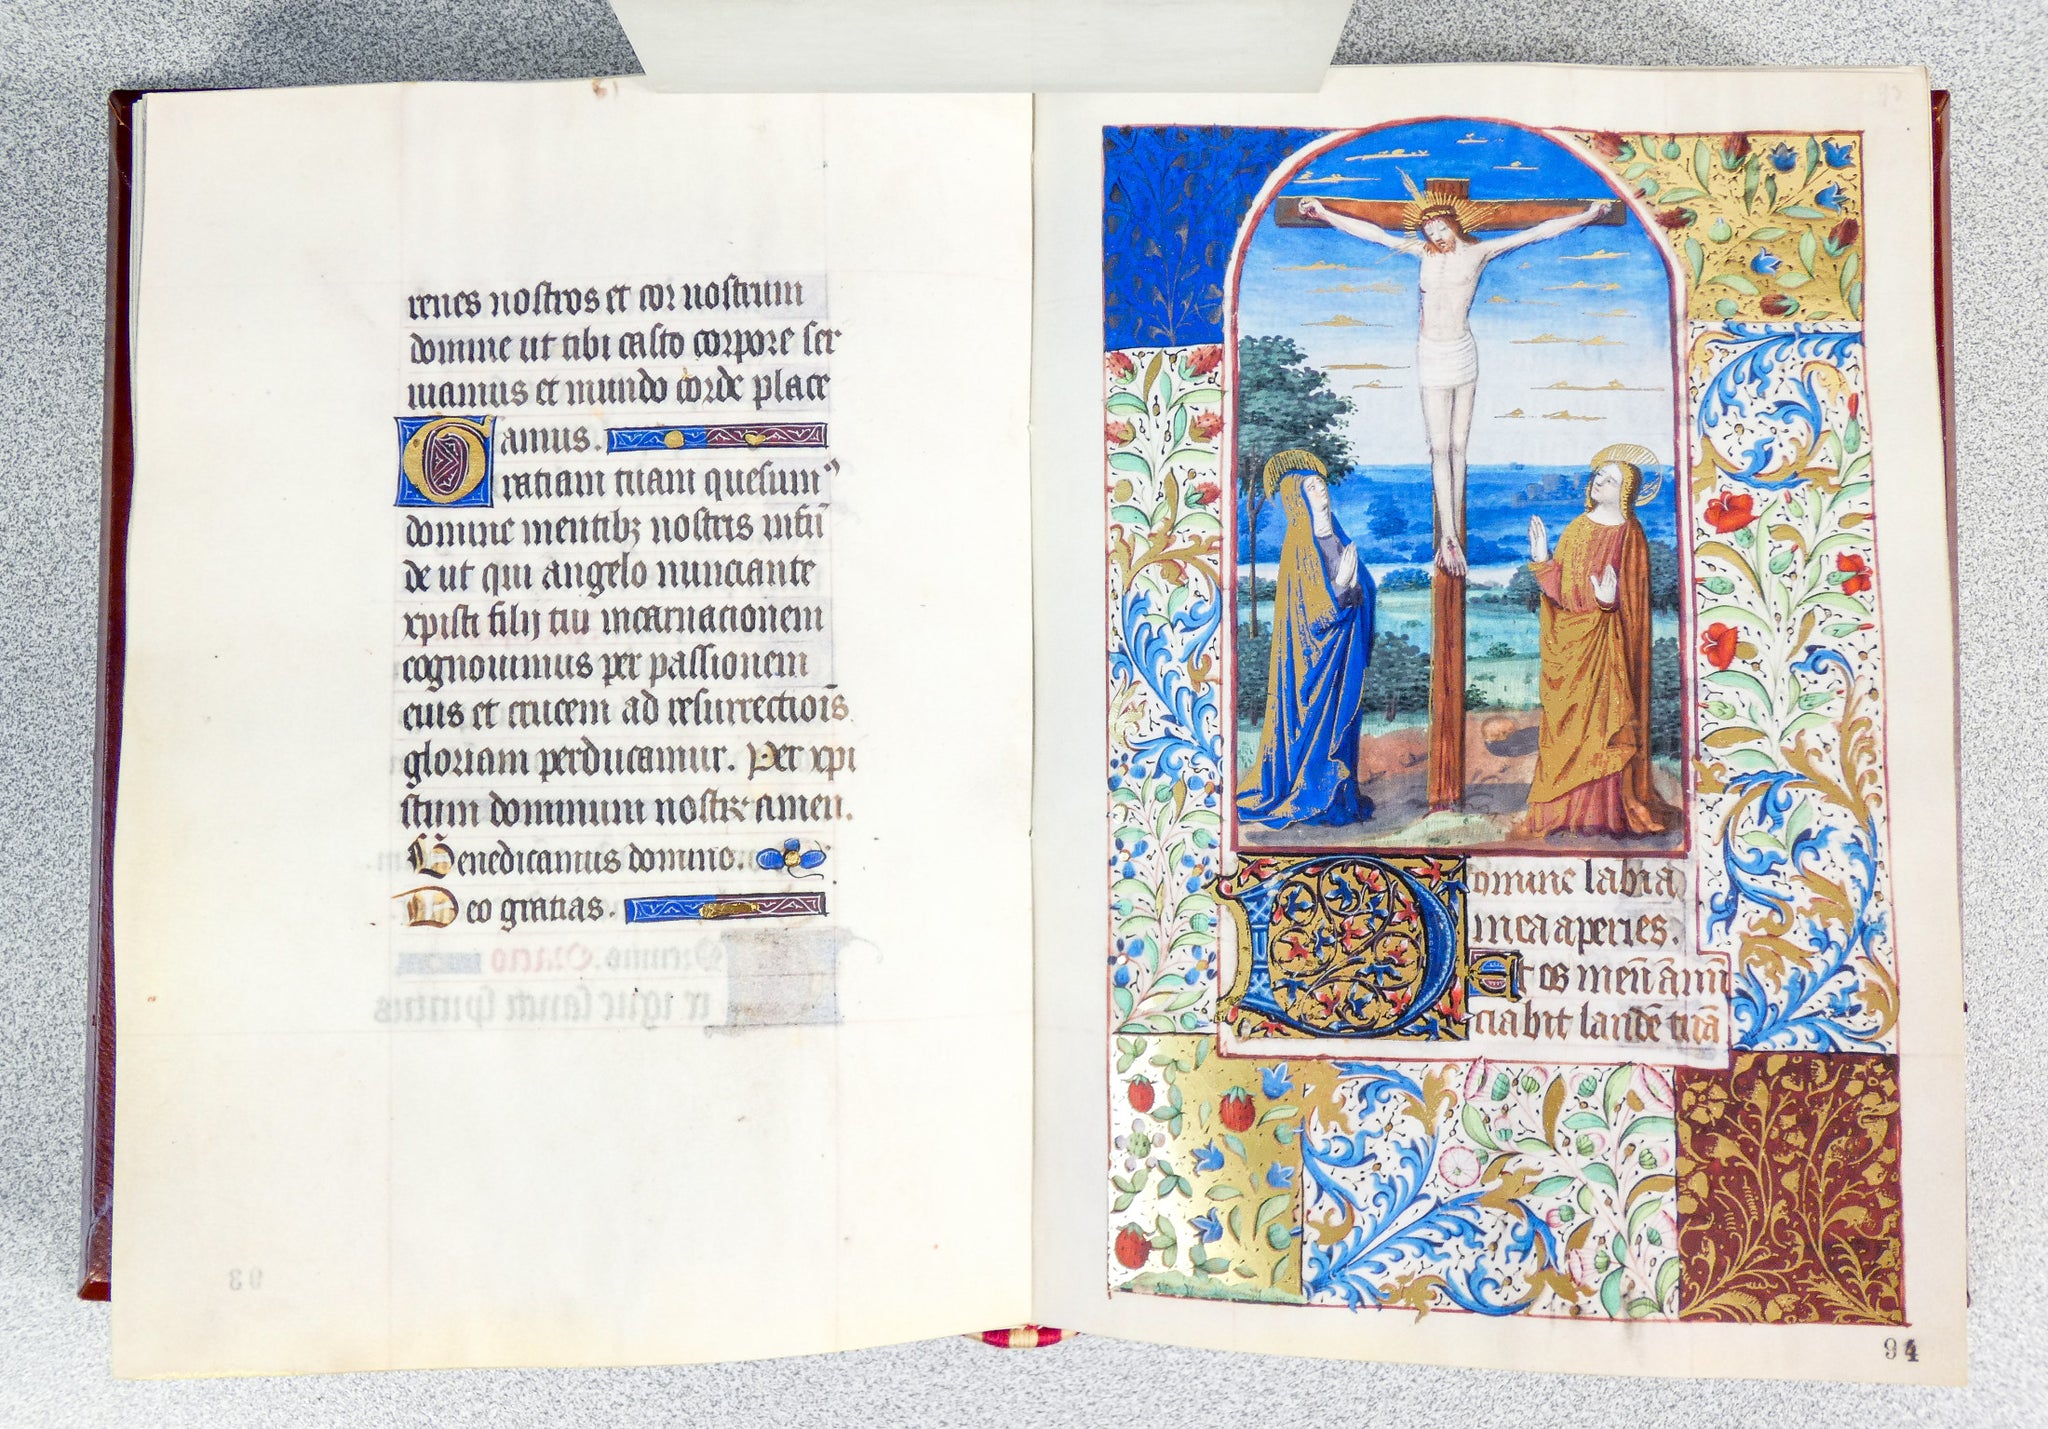 renes nostros et cor nostrum
domine ut tibi casto corpore ser
uiamus et mundo corde place
amus.
Gratiam tuam quesum⁹
domine mentibꝫ nostris infū
de ut qui angelo nunciante
xpisti filij tui incarnacionem
cognouimus per passionem
eius et crucem ad resurrectiōis
gloriam perducamur. Per xpi
stum dominum nostrꝝ amen.
Benedicamus domino.
Deo gratias.
93
Domine labia
mea aperies.
Et os meū annū
ciabit laudē tuā
94